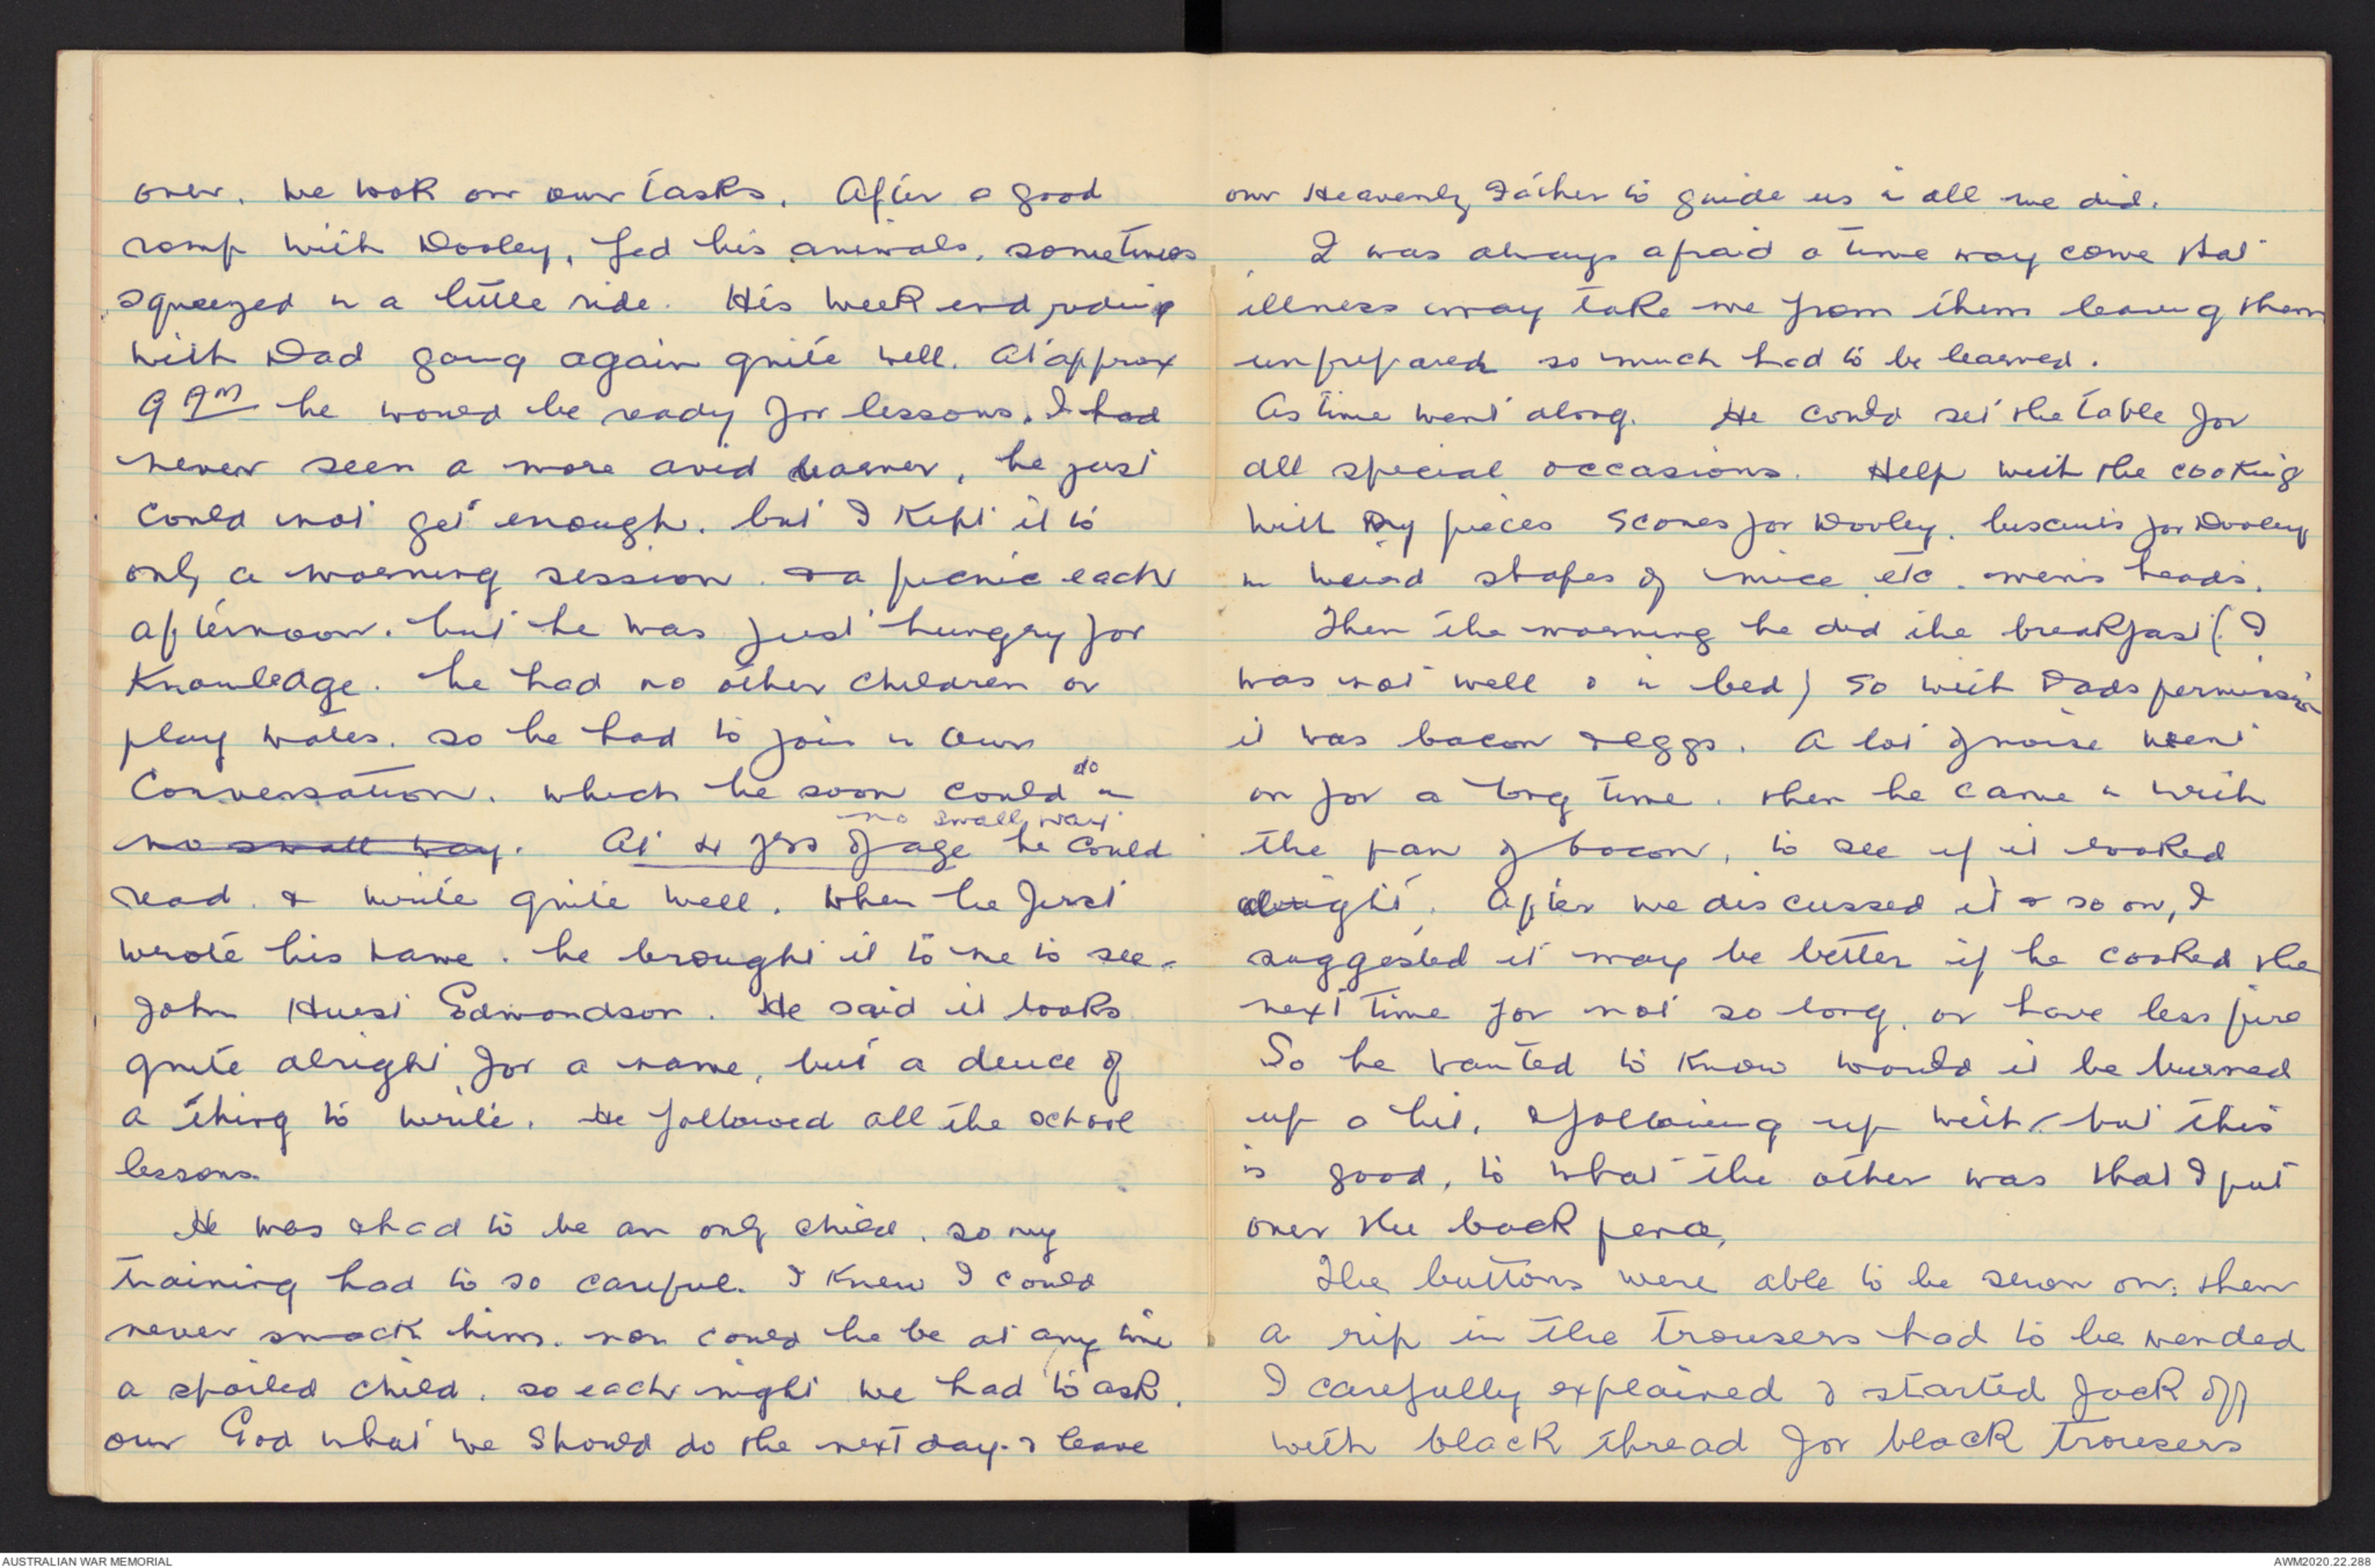 over. We took on our tasks. After a good
romp with Dooley, fed his animals, sometimes
squeezed in a little ride. His week end riding
with Dad going again quite well. At approx
9 am he would be ready for lessons. I had
never seen a more avid learner, he just
could not get enough. but I kept it to
only a morning session. & a picnic each
afternoon. but he was just hungry for
Knowledge. he had no other children or
play mates. so he had to join in our
Conversation. which he soon could do in
no small way
no small way. At 4 yrs of age he could
read. & write quite well. When he first
wrote his name. he brought it to me to see.
John Hurst Edmondson. He said it looks
quite alright for a name, but a deuce of
a thing to write. He followed all the school
lessons.
He was & had to be an only child. so my
training had to so careful. I knew I could
never smack him. nor could he be at any time
a spoiled child. so each night we had to ask.
our God what we should do the next day. & leave
our Heavenly Father to guide us in all we did.
I was always afraid a time may come that
illness may take me from them leaving them
unprepared so much had to be learned.
As time went along. He could set the table for
all special occasions. Help with the cooking
with my pieces Scones for Dooley. biscuits for Dooley
in weird shapes of mice etc. men's heads.
Then the morning he did the breakfast (I
was not well & in bed) So with Dads permission
it was bacon & eggs. A lot of noise went
on for a long time. then he came in with
the pan of bacon, to see if it looked
alright. After we discussed it & so on, I
suggested it may be better if he cooked the
next time for not so long. or have less fire
So he wanted to know would it be burned
up a bit, & following up with, but this
is good, to what the other was that I put
over the back fence,
The buttons were able to be sewn on. then
a rip in the trousers had to be mended
I carefully explained & started Jack off
with black thread for black trousers
AUSTRALIAN WAR MEMORIAL
AWM2020.22.288